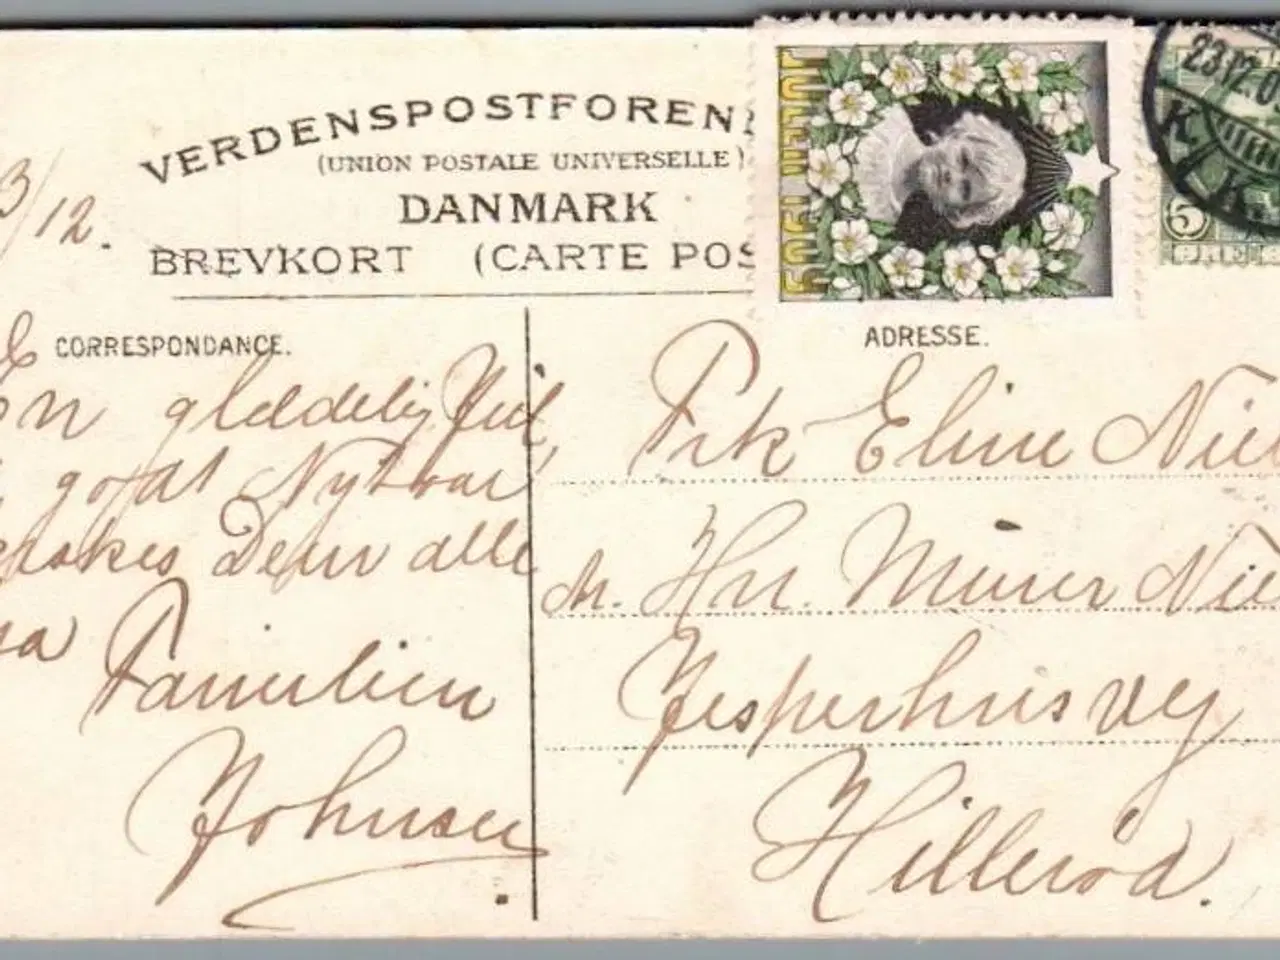 VERDENSPOSTFOREN
(UNION POSTALE UNIVERSELLE)
DANMARK
BREVKORT (CARTE POS
3/12.
JULEN 1907
23.12.0
K.
K.
5
ØRE
CORRESPONDANCE.
En glædelig Jul,
godt Nytaar
ønskes Dem alle
fra Familien
Johnsen
ADRESSE.
Frk Eline Niel
Hr. Murer Niel
Jespervej
Hillerød.